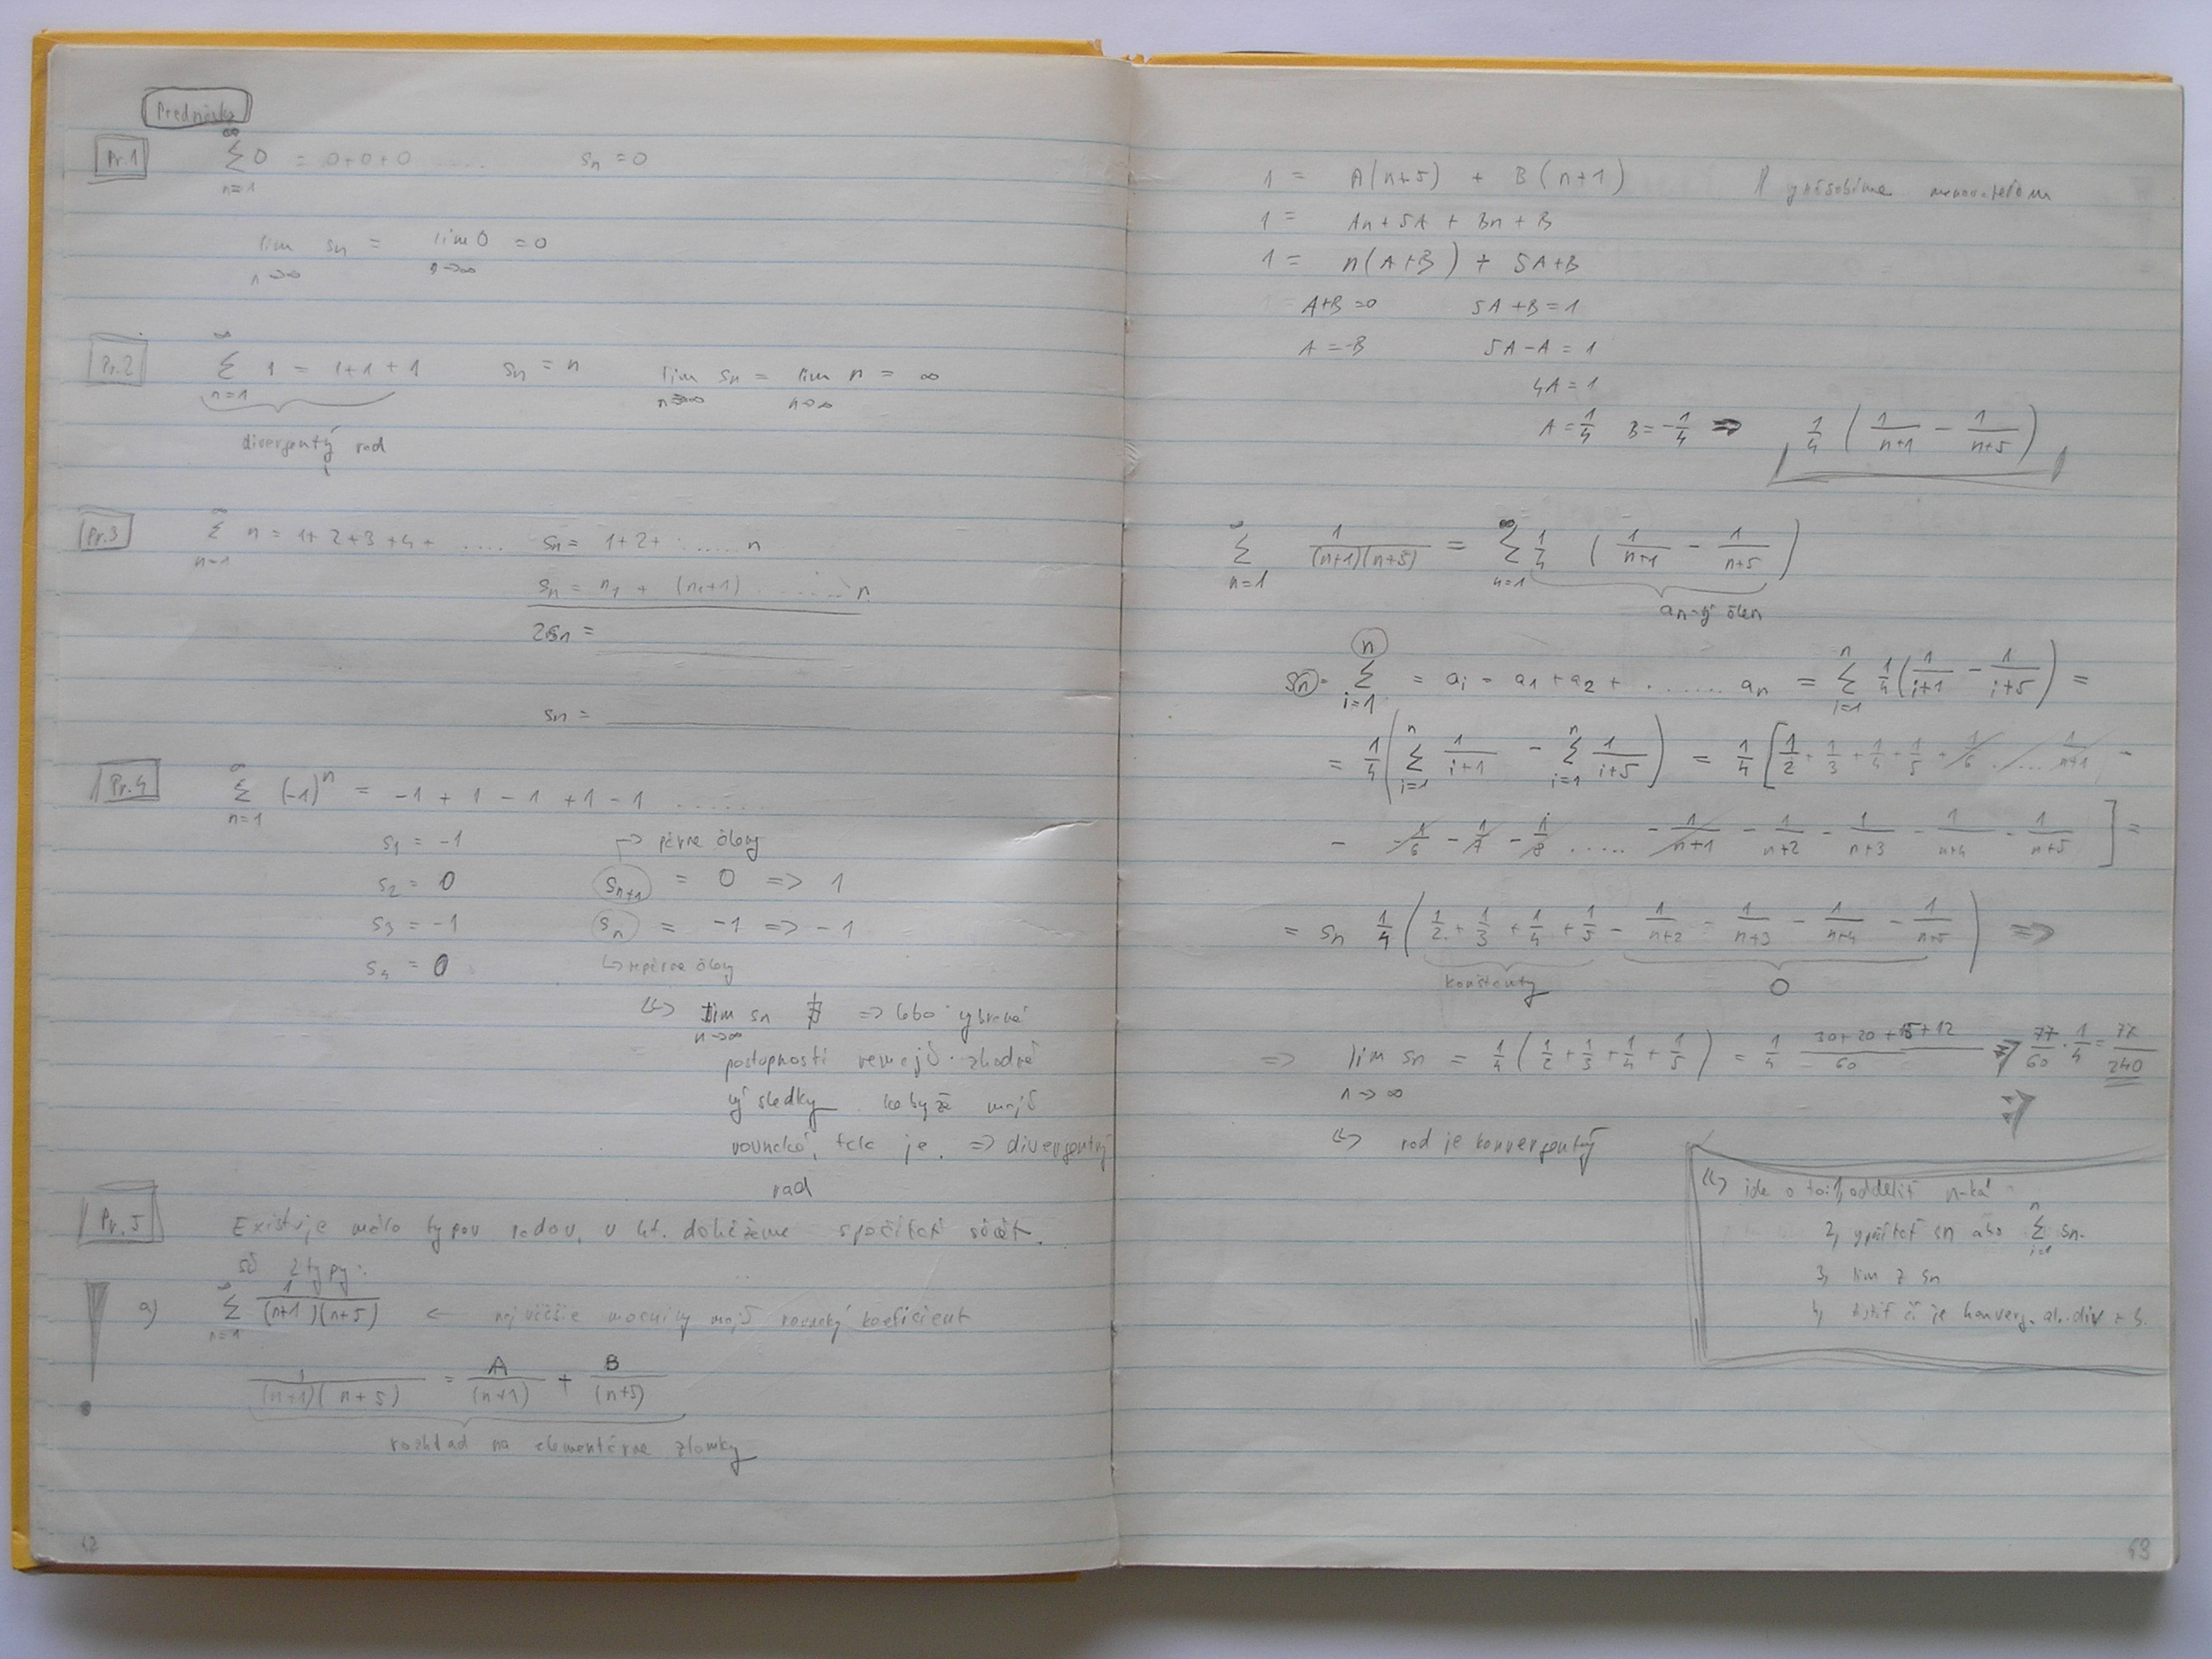 Prednáška
Pr.1 ∞∑n=1 0 = 0+0+0 ..... sn = 0
lim n→∞ sn = lim n→∞ 0 = 0
Pr.2 ∞∑n=1 1 = 1+1+1 sn = n lim n→∞ sn = lim n→∞ n = ∞
divergentý rad
Pr.3 ∞∑n=1 n = 1+2+3+4+ .... sn = 1+2+ ...... n
sn = n1 + (n1+1) ....... n
2sn =
sn =
Pr.4 ∞∑n=1 (-1)^n = -1 + 1 - 1 + 1 - 1 .......
s1 = -1 → párne členy
s2 = 0 sn+1 = 0 => 1
s3 = -1 sn = -1 => -1
s4 = 0 ↳ nepárne členy
↳> lim n→∞ sn ∄ => lebo vybrané
postupnosti nemajú zhodné
výsledky keby že majú
rovnaké, tak je. => divergentný
rad
Pr.5 Existuje málo typov radov, u kt. dokážeme spočítať súčet.
sú 2 typy:
a) ∞∑n=1 1/((n+1)(n+5)) ← najväčšie mocniny majú rovnaký koeficient
1/((n+1)(n+5)) = A/(n+1) + B/(n+5)
rozklad na elementárne zlomky
1 = A(n+5) + B(n+1) menovateľom
1 = An + 5A + Bn + B
1 = n(A+B) + 5A+B
A+B = 0 5A + B = 1
A = -B 5A - A = 1
4A = 1
A = 1/4 B = -1/4 => 1/4 (1/(n+1) - 1/(n+5))
∞∑n=1 1/((n+1)(n+5)) = ∞∑n=1 1/4 (1/(n+1) - 1/(n+5))
an-tý člen
sn = n∑i=1 = ai = a1 + a2 + ...... an = n∑i=1 1/4 (1/(i+1) - 1/(i+5)) =
= 1/4 (n∑i=1 1/(i+1) - n∑i=1 1/(i+5)) = 1/4 [1/2 + 1/3 + 1/4 + 1/5 + 1/6 ..... 1/(n+1) -
- - 1/6 - 1/7 - 1/8 ..... - 1/(n+1) - 1/(n+2) - 1/(n+3) - 1/(n+4) - 1/(n+5) ] =
= sn 1/4 (1/2 + 1/3 + 1/4 + 1/5 - 1/(n+2) - 1/(n+3) - 1/(n+4) - 1/(n+5)) =>
konštanty 0
=> lim n→∞ sn = 1/4 (1/2 + 1/3 + 1/4 + 1/5) = 1/4 (30+20+15+12)/60 => 77/60 · 1/4 = 77/240
↳> rad je konvergentný
↳> ide o to: 1, oddeliť n-ká
2, vypočítať sn abo n∑i=1 sn.
3, lim z sn
4, zistiť či je konverg. al. div
63